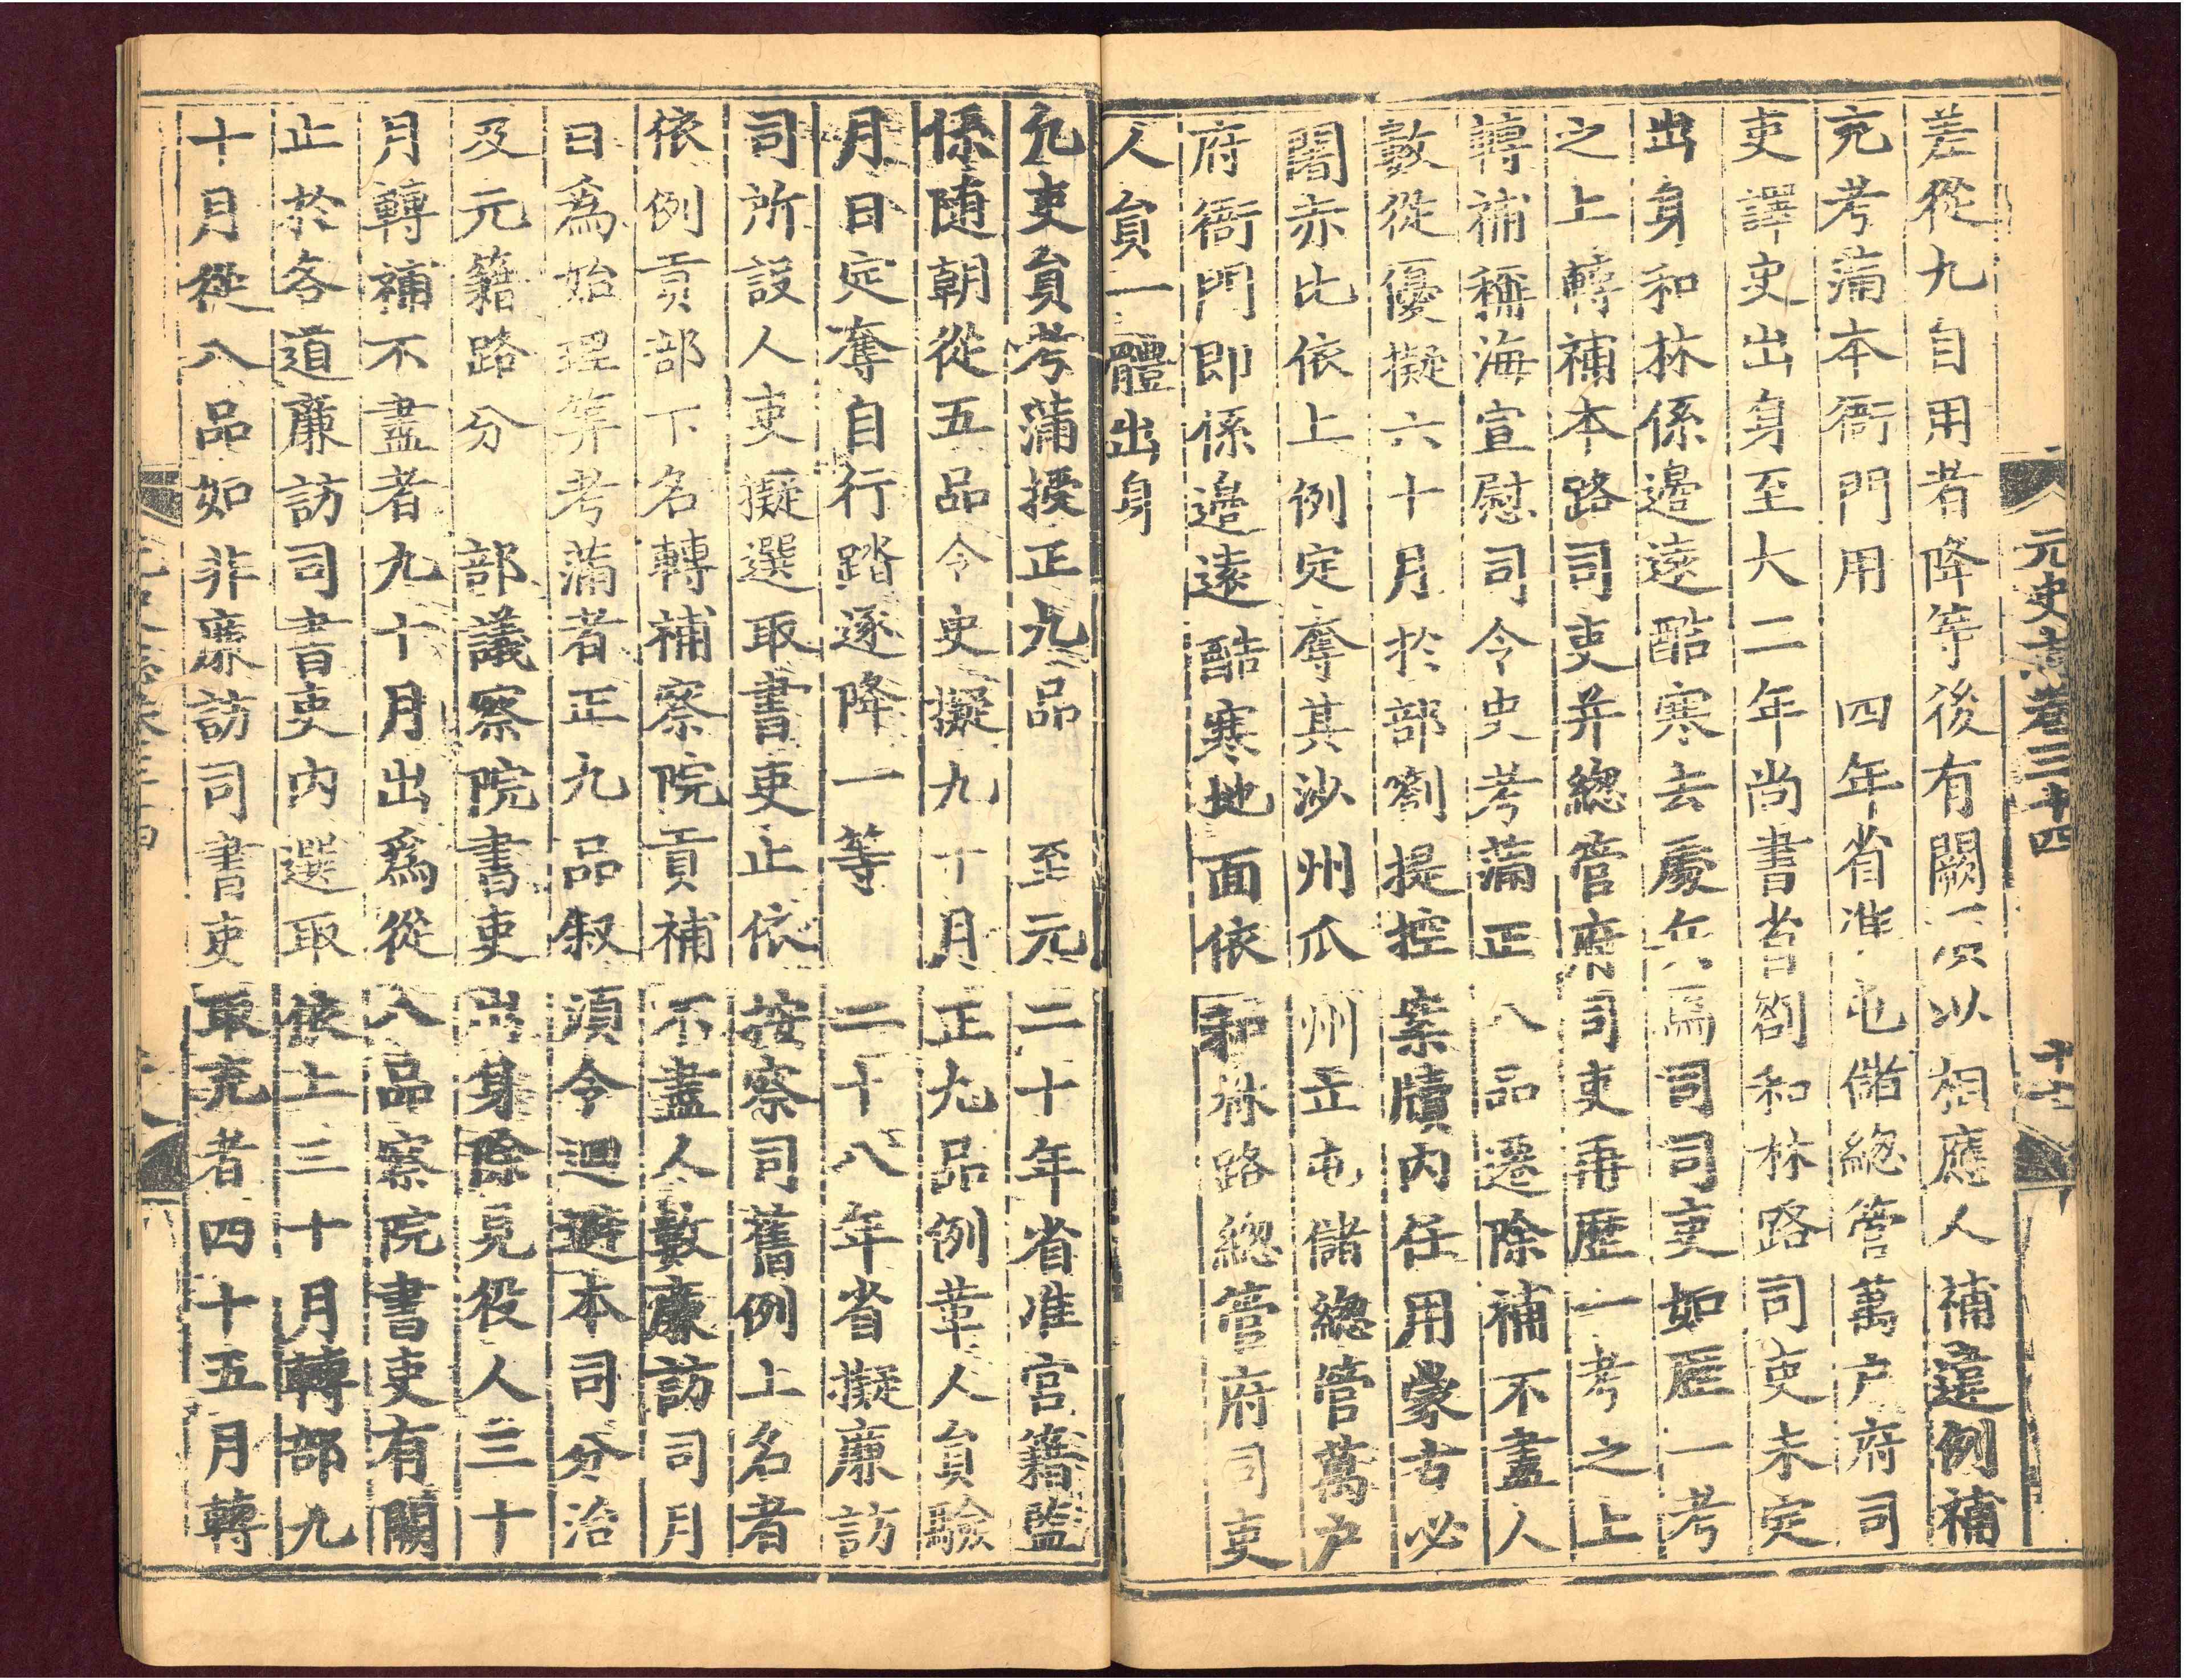 元史志卷三十四 十七
差從九自用者降等後有闕以相應人補違例補
充考滿本衙門用 四年省准屯儲總管萬户府司
吏譯史出身至大二年尚書省劄和林路司吏未定
出身和林係邊遠酷寒去處兵馬司司吏如歷一考
之上轉補本路司吏并總管府司吏再歷一考之上
轉補稱海宣慰司令史考滿正八品遷除補不盡人
數從優擬六十月於部劄提控案牘內任用蒙古必
闍赤比依上例定奪其沙州瓜州立屯儲總管萬户
府衙門即係邉遠酷寒地面依和林路總管府司吏
人員一體出身
凢吏員考滿授正九品 至元二十年省准宫籍監
係随朝從五品令史擬九十月正九品例革人員驗
月日定奪自行踏逐降一等 二十八年省擬廉訪
司所設人吏擬選取書吏止依按察司舊例上名者
依例貢部下名轉補察院貢補不盡人數廉訪司月
日為始理筭考滿者正九品叙須令迴避本司分治
及元籍路分 部議察院書吏出身除見役人三十
月轉補不盡者九十月出爲從八品察院書吏有闕
止於各道廉訪司書吏內選取依上三十月轉部九
十月從八品如非廉訪司書吏取充者四十五月轉